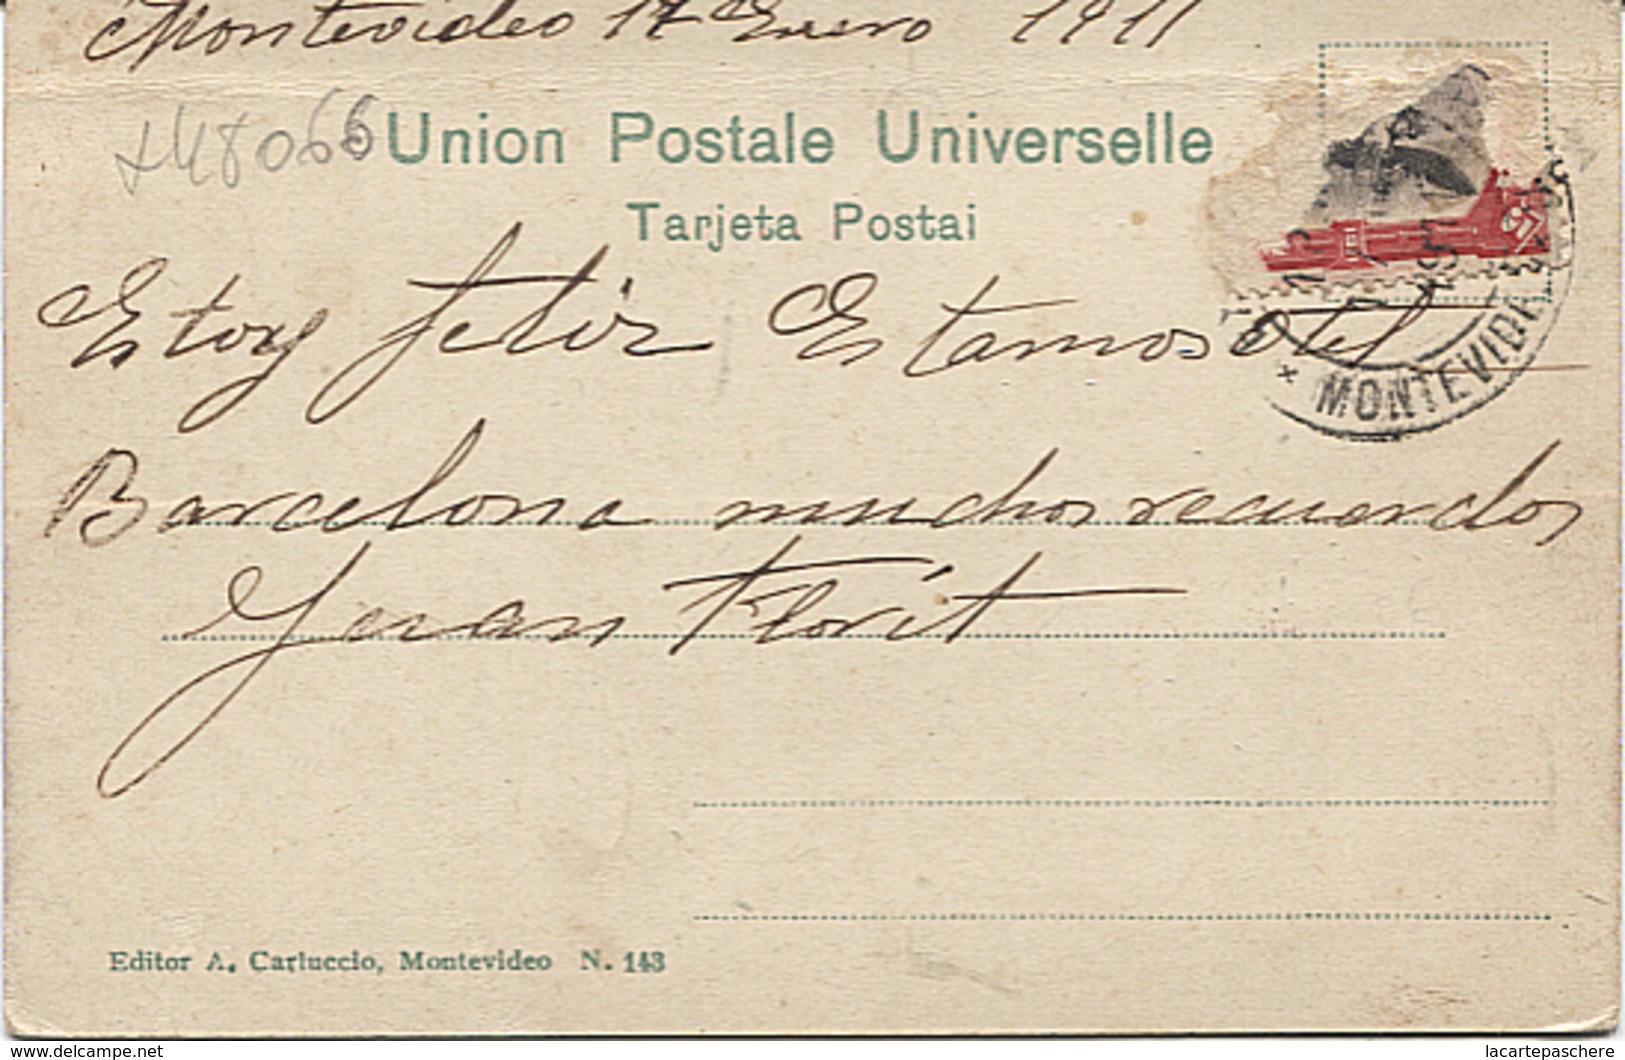 Montevideo 17 Enero 1911
+48066
Union Postale Universelle
Tarjeta Postal
Estoy feliz Estamos otel
Barcelona muchos recuerdos
Juan Florit
MONTEVIDEO
Editor A. Carluccio, Montevideo N. 143
www.delcampe.net
lacartepaschere